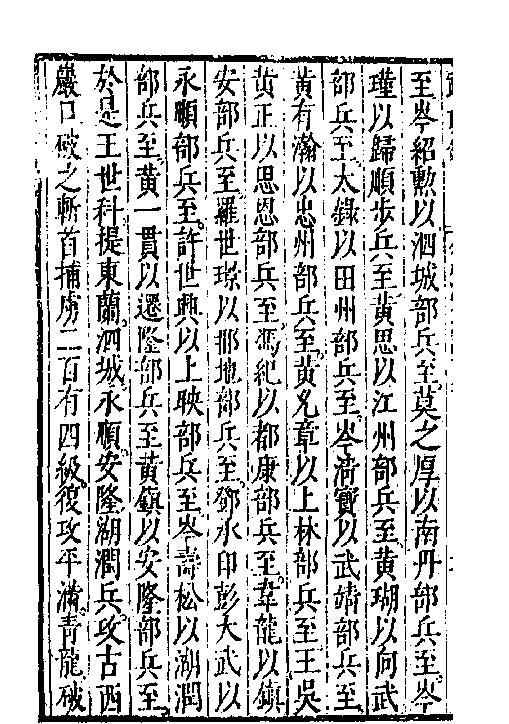 至岑紹勲以泗城部兵至莫之厚以南丹部兵至岑
瑾以歸順步兵至黄思以江州部兵至黄瑚以向武
部兵至太錄以田州部兵至岑濟寳以武靖部兵至
黄有瀚以忠州部兵至黄允章以上林部兵至王吳
黄正以思恩部兵至馮紀以都康部兵至韋龍以鎮
安部兵至羅世璟以那地部兵至鄧永印彭大武以
永順部兵至許世興以上映部兵至岑壽松以湖潤
部兵至黄一貫以遷隆部兵至黄鎮以安隆部兵至
於是王世科提東蘭泗城永順安隆湖潤兵攻古西
巖口破之斬首捕虜二百有四級復攻平滿青龍破